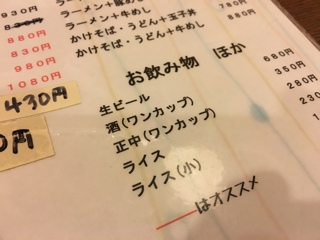 930円
830円
880円
930円
980円
1080円
430円
0円
ラーメン+豚めし
ラーメン+牛めし
かけそば・うどん+玉子丼
かけそば・うどん+牛めし
780円
880円
お飲み物 ほか
生ビール
酒(ワンカップ)
正中(ワンカップ)
ライス
ライス(小)
680円
350円
280円
230
10
はオススメ